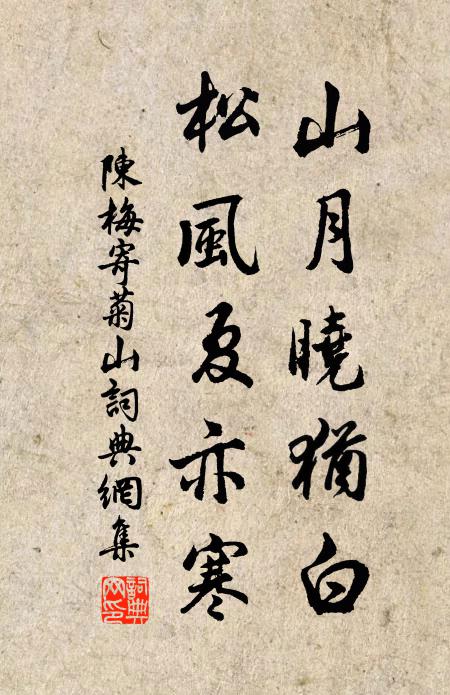 山月曉猶白
松風夏亦寒
陳梅寄菊山詞典網集
詞典網印